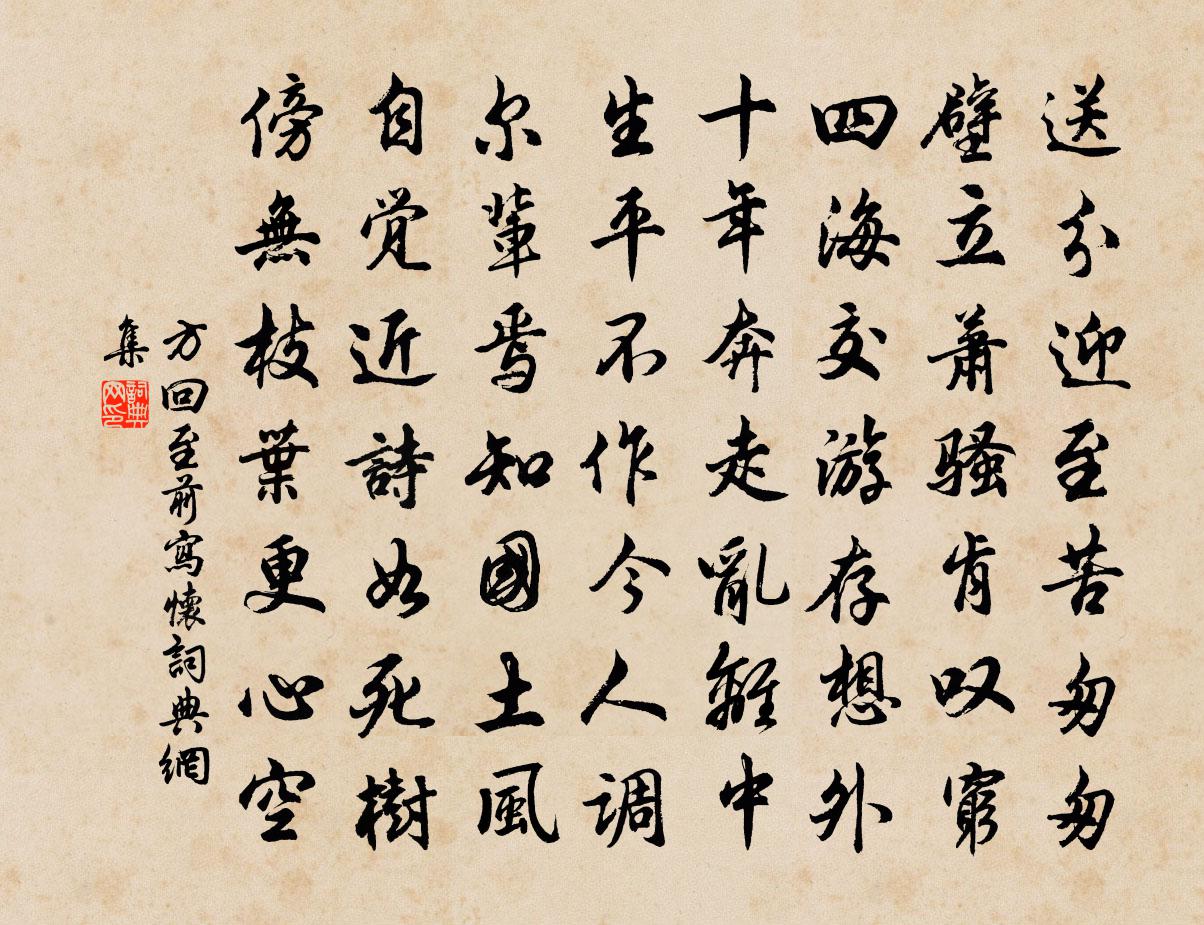 送分迎至苦匆匆
壁立萧骚肯叹窮
四海交游存想外
十年奔走亂離中
生平不作今人调
尔輩焉知國土風
自觉近詩如死樹
傍無枝葉更心空
方回至前寫懷詞典網
集
詞典
网印